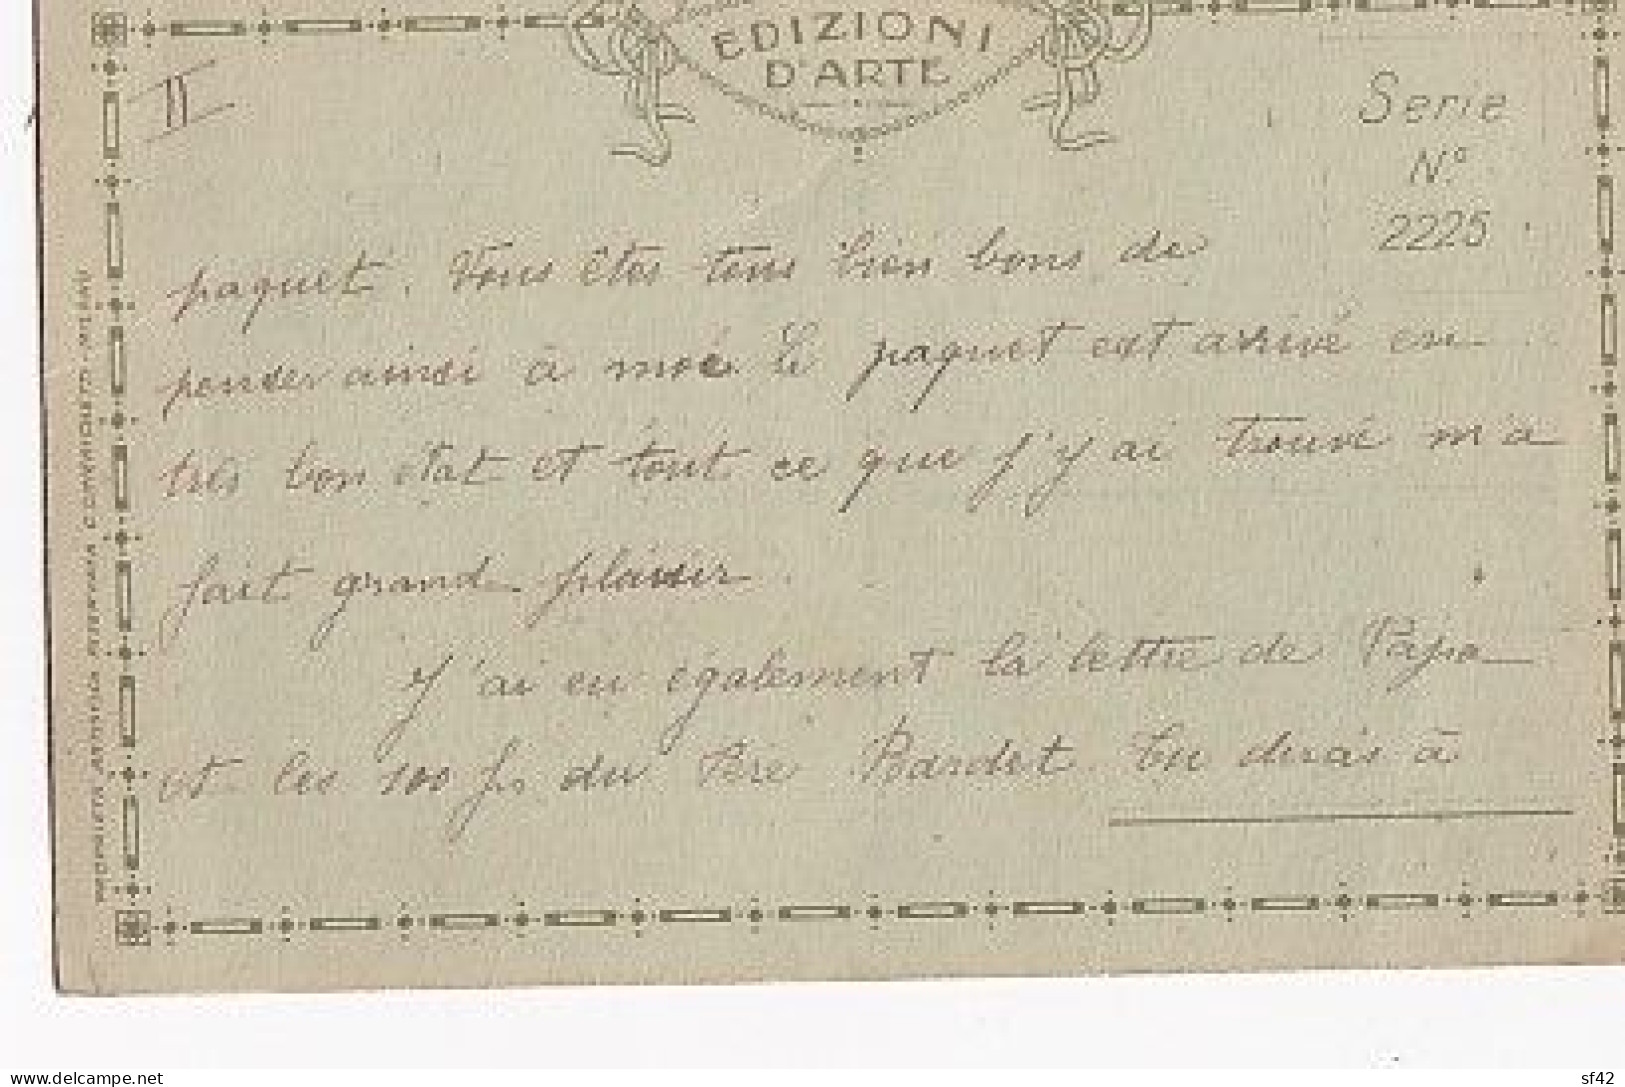 EDIZIONI
D'ARTE
II
Serie
N.º
2225
paquet. Vous êtes tous bien bons de
penser ainsi à moi. Le paquet est arrivé en
très bon état et tout ce que j'y ai trouvé m'a
fait grand plaisir.
J'ai eu également la lettre de Papa
et les 100 frs du Père Bardet. Tu diras à
PROPRIETÀ ARTISTICA RISERVATA
delcampe.net
sf42